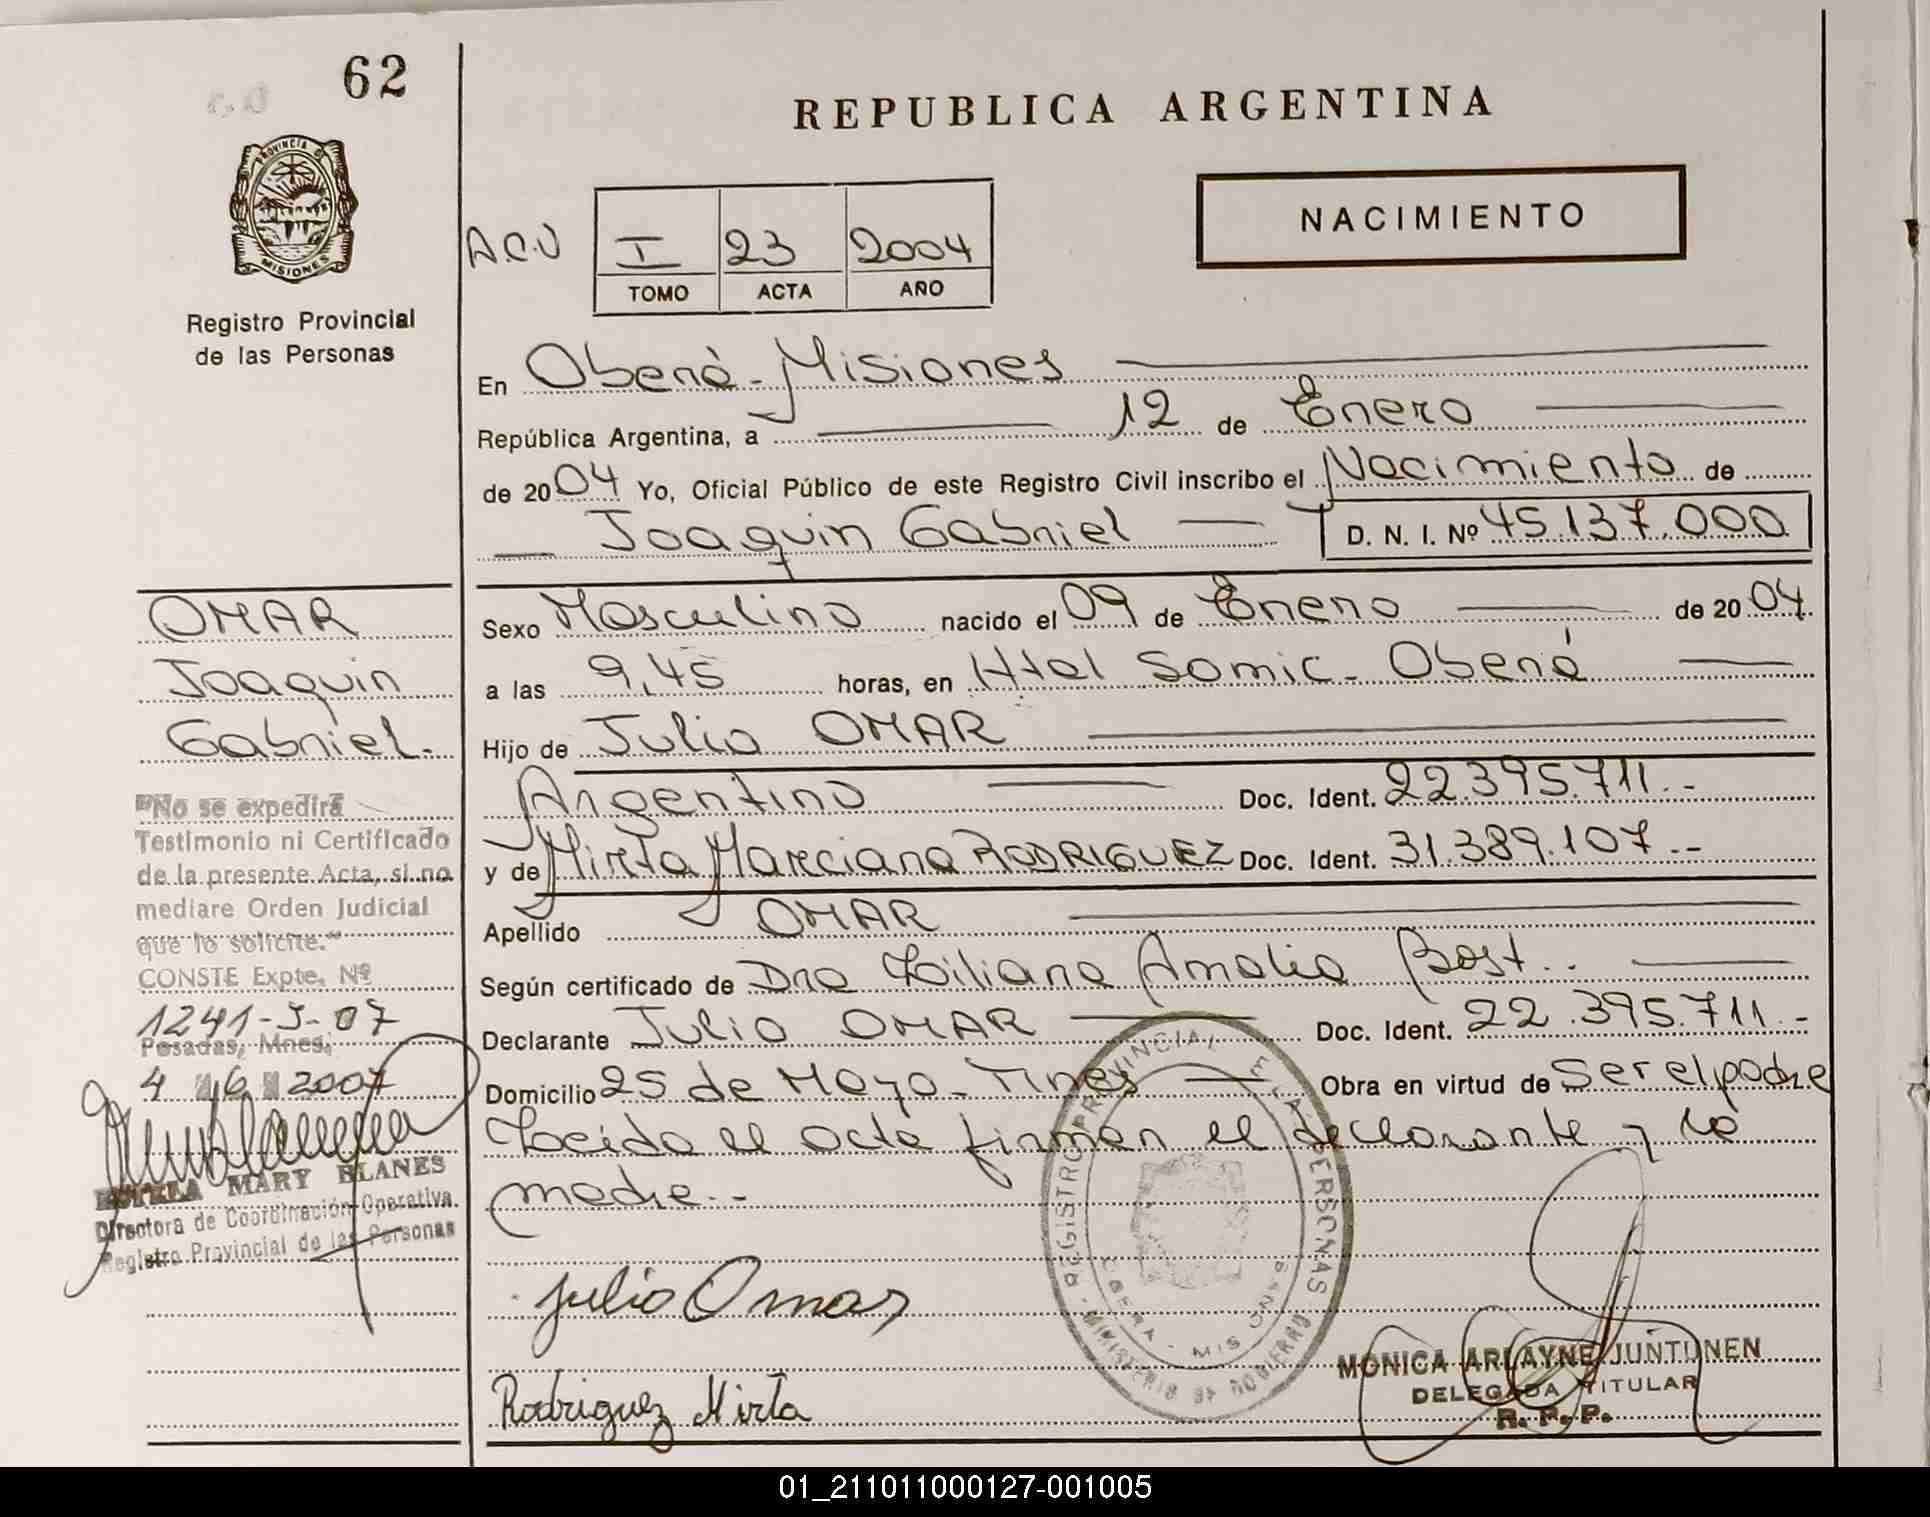 62
REPUBLICA ARGENTINA
PROVINCIA D
MISIONES
Registro Provincial
de las Personas
A.C.U
I 23 2004
TOMO ACTA AÑO
NACIMIENTO
En Oberá - Misiones
República Argentina, a 12 de Enero
de 2004 Yo, Oficial Público de este Registro Civil inscribo el Nacimiento de
Joaquin Gabriel D. N. I. Nº 45.137.000
OMAR
Joaquin
Gabriel.
Sexo Masculino nacido el 09 de Enero de 2004.
a las 9,45 horas, en Htal Samic - Oberá
Hijo de Julio OMAR
Argentino Doc. Ident. 22.395.711.-
y de Mirta Marciana RODRIGUEZ Doc. Ident. 31.389.107.--
Apellido OMAR
Según certificado de Dra Liliana Amalia Bost..
Declarante Julio OMAR Doc. Ident. 22.395.711.-
Domicilio 25 de Mayo - Mnes Obra en virtud de Ser el padre
Leída el acta firman el declarante y la
madre.-
"No se expedirá
Testimonio ni Certificado
de la presente Acta, si no
mediare Orden Judicial
que lo solicite."
CONSTE Expte. Nº
1241-J-07
Posadas, Mnes.
4 6 2007
ESTELA MARY BLANES
Directora de Coordinación Operativa
Registro Provincial de las Personas
REGISTRO PROVINCIAL E LAS PERSONAS
MINISTERIO DE GOBIERNO
OBERA - MIS
Julio Omar
Rodriguez Mirta
MONICA ARLAYNE JUNTUNEN
DELEGADA TITULAR
R. P. P.
01_211011000127-001005